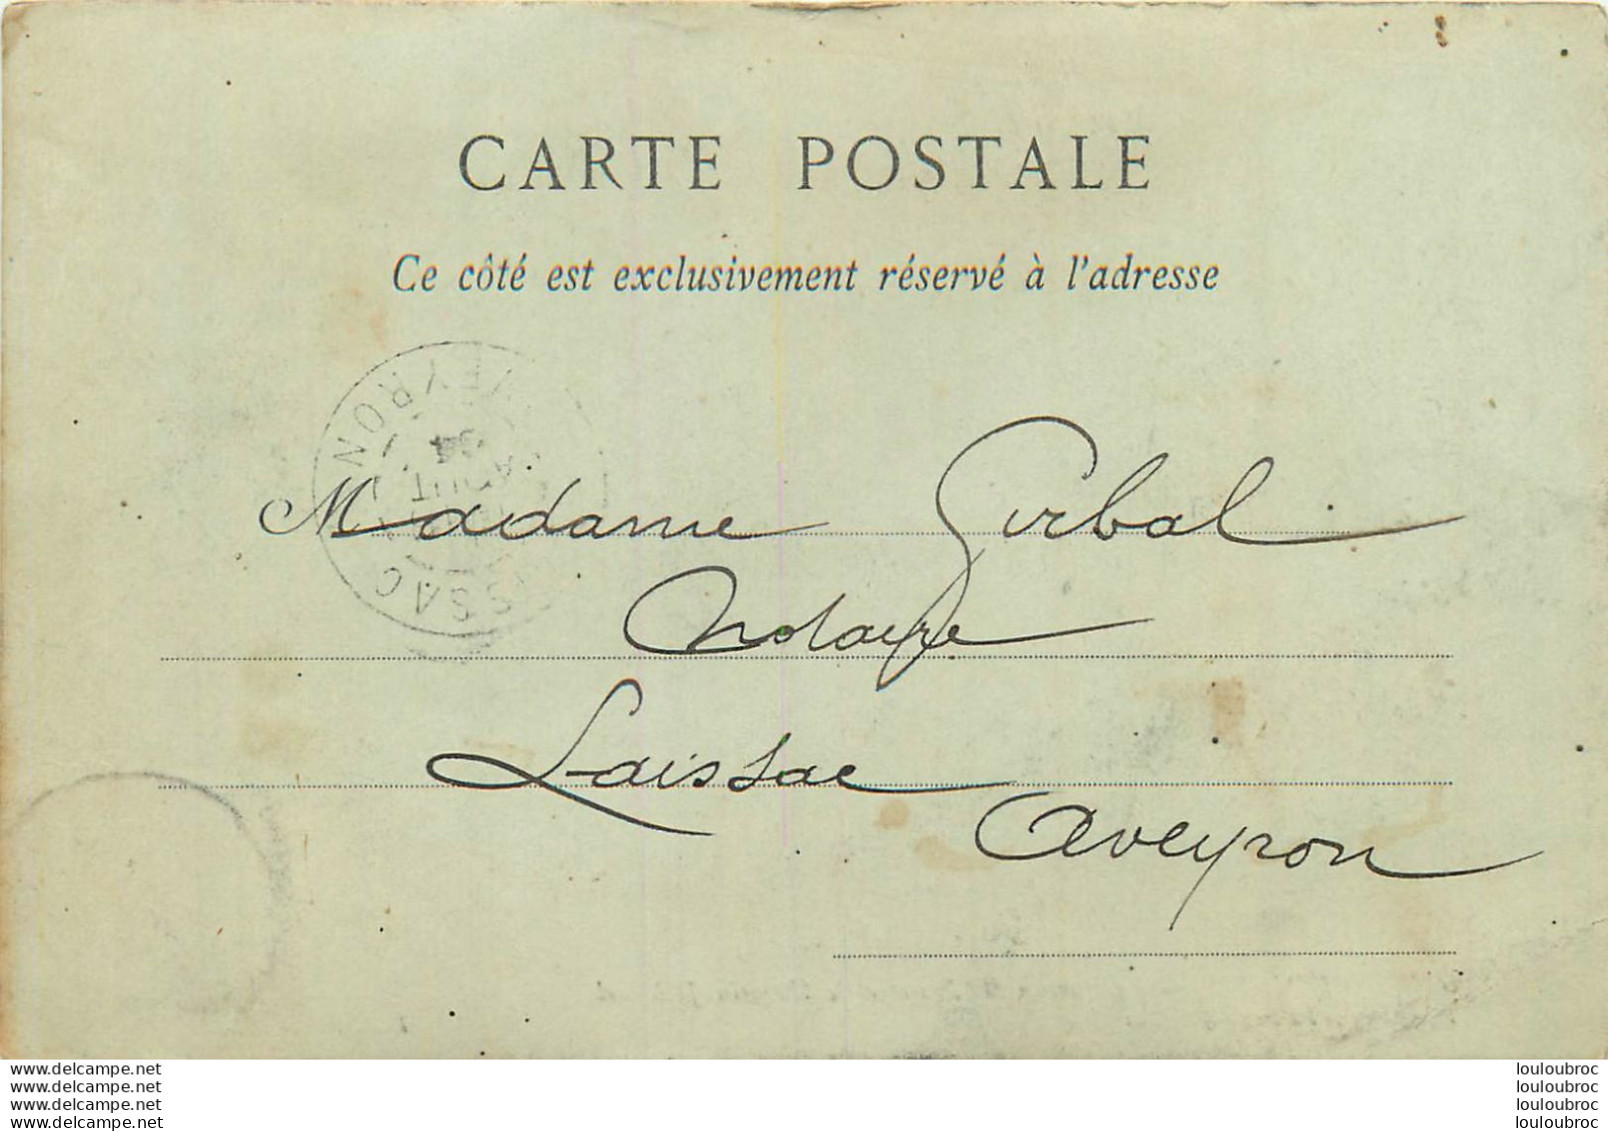 CARTE POSTALE
Ce côté est exclusivement réservé à l'adresse
AVEYRON
AOUT
LAISSAC
Madame Girbal
Notaire
Laissac
Aveyron
www.delcampe.net
www.delcampe.net
www.delcampe.net
www.delcampe.net
louloubroc
louloubroc
louloubroc
louloubroc